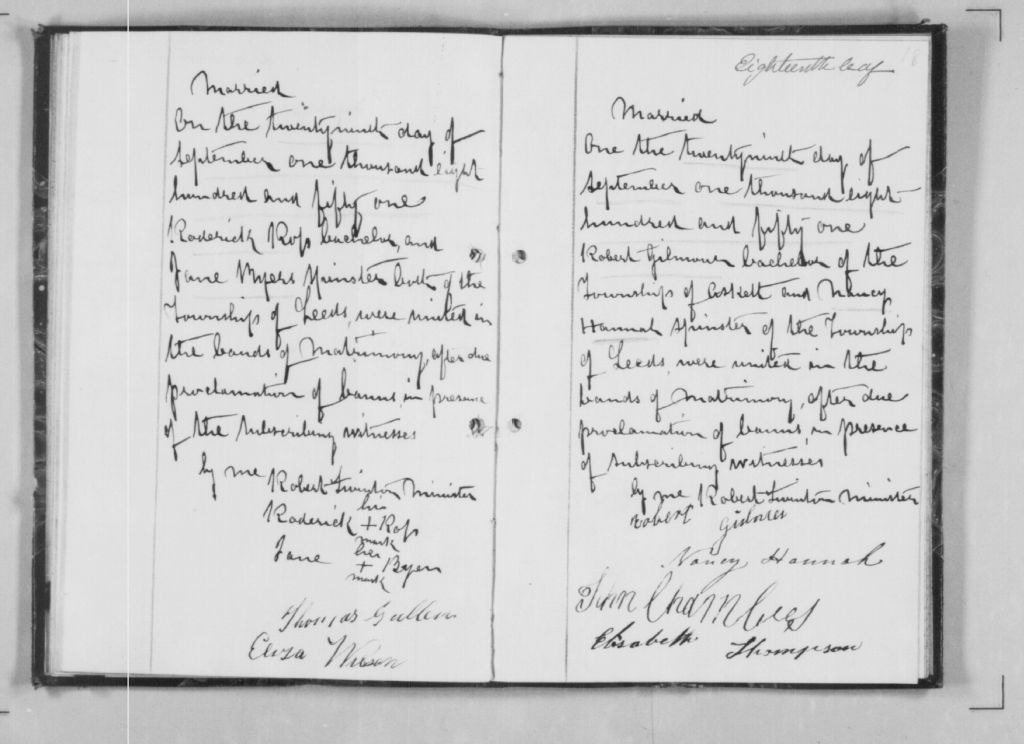 Married
On the twentyninth day of
September one thousand eight
hundred and fifty one
Roderick Ross bachelor, and
Jane Myers Spinster both of the
Township of Leeds, were united in
the bands of Matrimony, after due
proclamation of banns, in presence
of the subscribing witnesses
by me Robert Swinton Minister
his
Roderick + Ross
mark
her
Jane + Byers
mark
Thomas Gullen
Eliza Wilson
Eighteenth leaf
18
Married
One the twentyninth day of
September one thousand eight
hundred and fifty one
Robert Gilmour bachelor of the
Township of and Nancy
Hannah Spinster of the Township
of Leeds, were united in the
bands of Matrimony, after due
proclamation of banns in presence
of subscribing witnesses
by me Robert Swinton Minister
robert
Nancy Hannah
John Chambers
Elisabeth Thompson